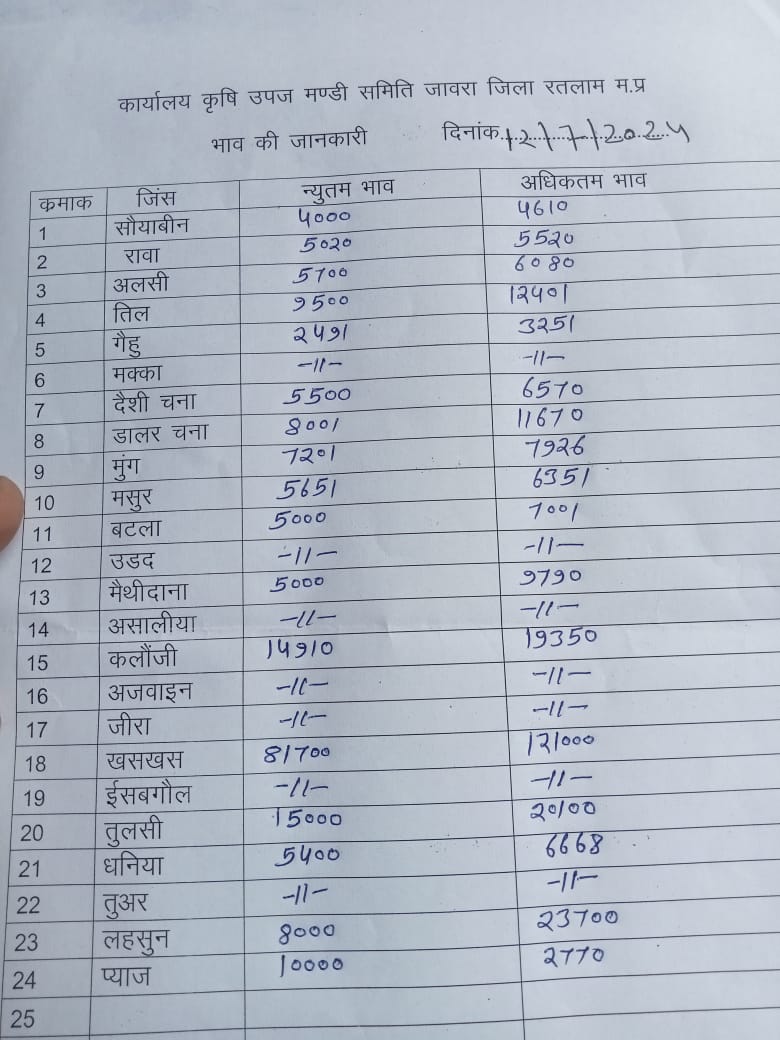 कार्यालय कृषि उपज मण्डी समिति जावरा जिला रतलाम म.प्र
भाव की जानकारी दिनांक 12/7/2024
क्रमाक जिंस न्युतम भाव अधिकतम भाव
1 सौयाबीन 4000 4610
2 रावा 5020 5520
3 अलसी 5700 6080
4 तिल 9500 12401
5 गैहु 2491 3251
6 मक्का -11- -11-
7 दैशी चना 5500 6570
8 डालर चना 8001 11670
9 मुंग 7201 7926
10 मसुर 5651 6351
11 बटला 5000 7001
12 उडद -11- -11-
13 मैथीदाना 5000 9790
14 असालीया -11- -11-
15 कलौंजी 14910 19350
16 अजवाइन -11- -11-
17 जीरा -11- -11-
18 खसखस 81700 121000
19 ईसबगौल -11- -11-
20 तुलसी 15000 20100
21 धनिया 5400 6668
22 तुअर -11- -11-
23 लहसुन 8000 23700
24 प्याज 10000 2770
25